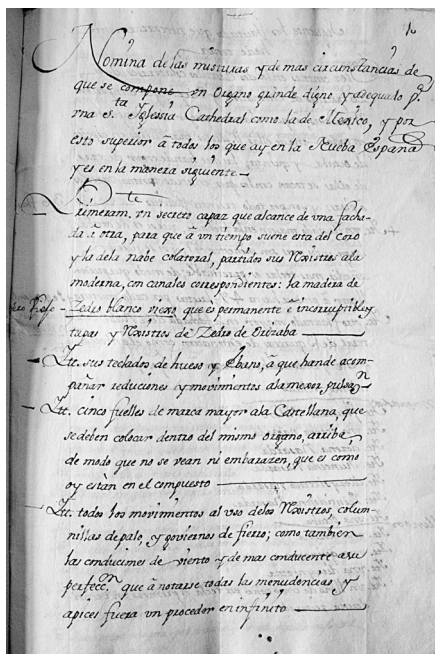 1
Nomina de las misturas y demas circunstancias de
que se compone un Organo grande digno, y adequato p.ª
vna S.ta Iglessia Cathedral como la de Mexico, y por
esto superior â todos los que ay en la Nueba España
y es en la manera siguiente—
Primeram.te vn secreto capaz que alcance de vna facha-
da â otra, para que â vn tiempo suene esta del coro
y la dela nabe colatoral, partidos sus Rexistros ala
moderna, con canales correspondientes: la madera de
Zedro blanco viexo que es permanente ê incorruptible y
tapas y Rexistros de Zedro de Orizaba
Ytt. sus teclados, de hueso y Ebano, â que hande acom-
pañar reduciones y movimientos ala mexor pulsa.on
Ytt. cinco fuelles de marca mayor ala Castellana, que
se deben colocar dentro del mismo Organo, arriba,
de modo que no se vean ni embarazen, que es como
oy están en el compuesto
Ytt. todos los movimientos al vso delos Rexistros, colum-
nillas de palo, y govienos de fierro; como tambien
las conduciones de viento y demas conducente asu
perfecc.on que â notarse todas las menudencias y
apices fuera vn proceder en infinito